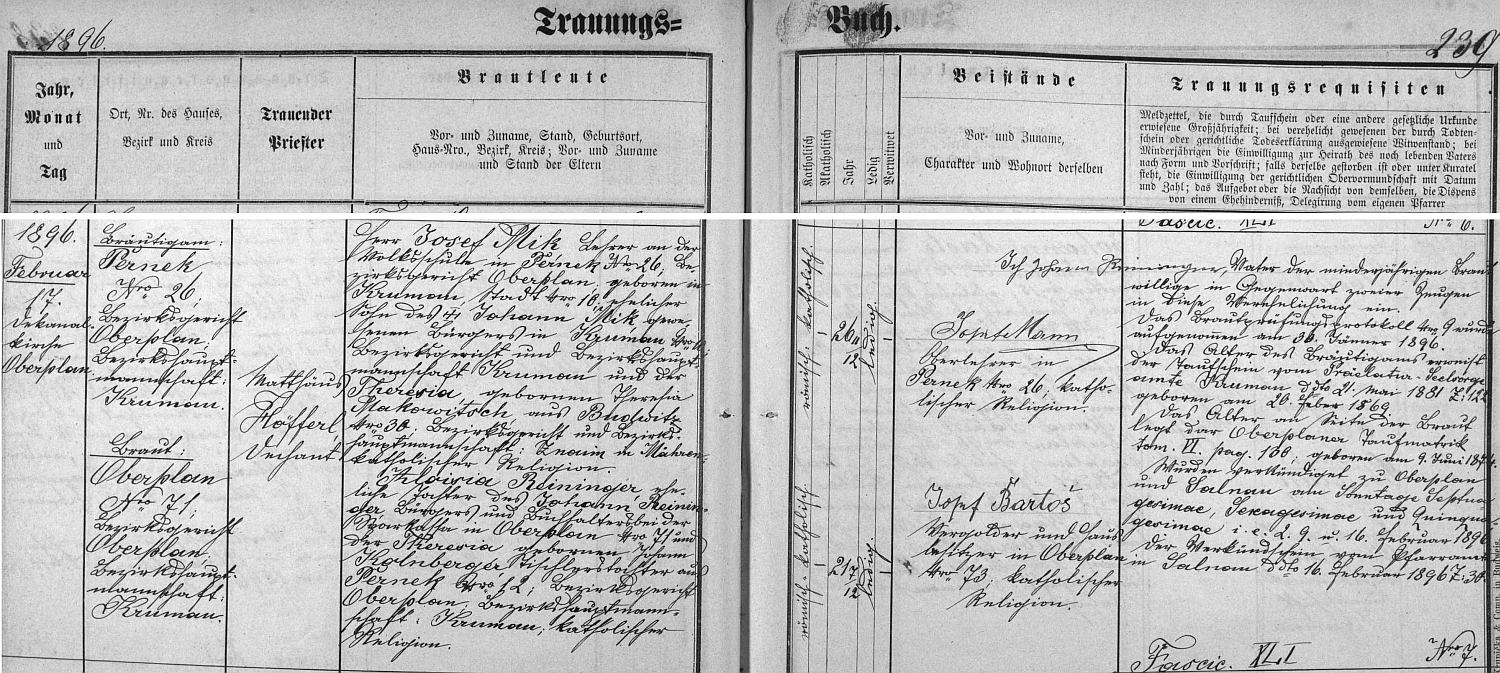 1896.
Trauungs=
Buch.
239
Jahr,
Monat
und
Tag
Ort, Nr. des Hauses,
Bezirk und Kreis
Trauender
Priester
Brautleute
Vor- und Zuname, Stand, Geburtsort,
Haus-Nro., Bezirk, Kreis; Vor- und Zuname
und Stand der Eltern
Katholisch
Akatholisch
Jahr
Ledig
Verwitwet
Beistände
Vor- und Zuname,
Charakter und Wohnort derselben
Trauungsrequisiten
Meldzettel, die durch Taufschein oder eine andere gesetzliche Urkunde
erwiesene Großjährigkeit; bei verehelicht gewesenen der durch Todten-
schein oder gerichtliche Todeserklärung ausgewiesene Witwenstand; bei
Minderjährigen die Einwilligung zur Heirath des noch lebenden Vaters
nach Form und Vorschrift; falls derselbe gestorben ist oder unter Kuratel
steht, die Einwilligung der gerichtlichen Obervormundschaft mit Datum
und Zahl; das Aufgebot oder die Nachsicht von demselben, die Dispens
von einem Ehehinderniß, Delegirung vom eigenen Pfarrer
1896.
Februar
17.
Dekanal-
kirche
Oberplan.
Bräutigam:
Pernek
Nro 26,
Bezirksgericht
Oberplan,
Bezirkshaupt-
mannschaft:
Kruman.
Braut:
Oberplan
Nro 71,
Bezirksgericht
Oberplan.
Bezirkshaupt-
mannschaft:
Kruman.
Matthäus
Höfferl,
Dechant
Herr Josef Mik Lehrer an der
Volksschule in Pernek Nro 26, Be-
zirksgericht Oberplan, geboren in
Kruman, Stadt Nro 10, ehelicher
Sohn des † Johann Mik gewe
senen Bürgers in Kruman
Bezirksgericht und Bezirkshaupt
mannschaft Kruman und der
Theresia gebornen Theresia
Makowitsch aus Budwitz
Nro 30, Bezirksgericht und Bezirks-
hauptmannschaft: Znaim in Mähren
katholischer Religion.
Aloisia Reininger, ehe-
liche Tochter des Johann Reinin-
ger, Bürgers und Buchhalters bei der
Sparkassa in Oberplan Nro 71 und
der Theresia gebornen Johann
Kolnberger Tischlerstochter aus
Pernek Nro 12, Bezirksgericht
Oberplan, Bezirkshauptmann-
schaft: Kruman, katholischer
Religion.
römisch-katholisch
26 11/12
ledig
römisch-katholisch
ledig.
Josef Mann
Oberlehrer in
Pernek Nro 26, katho-
lischer Religion.
Josef Bartoš
Vergolder und Haus
besitzer in Oberplan
Nro 73, katholischer
Religion.
Fascic. XLI No 6.
Ich Johann Reininger, Vater der minderjährigen Braut
willige in Gegenwart zweier Zeugen
in diese Verehelichung ein.
Das Brautprüfungsprotokoll Nro 9 wurde
aufgenommen am 30. Jänner 1896.
Das Alter des Bräutigams erweist
der Taufschein vom Praelatur-Seelsorge
amte Kruman dto 21. Mai 1881 Z: 122
geboren am 20. Feber 1869.
Das Alter an Seite der Braut
legt dar Oberplaner Taufmatrik
tom. VI. pag. 100, geboren am 9. Juni 1874.
Wurden verkündiget zu Oberplan
und Salnau am Sonntage Septua
gesimae, Sexagesimae und Quinqua
gesimae i. e. 2. 9. u. 16. Februar 1896
Der Verkündschein vom Pfarramte
in Salnau dto 16. Februar 1896 Z: 30.
Fascic. XLI Nro 7.